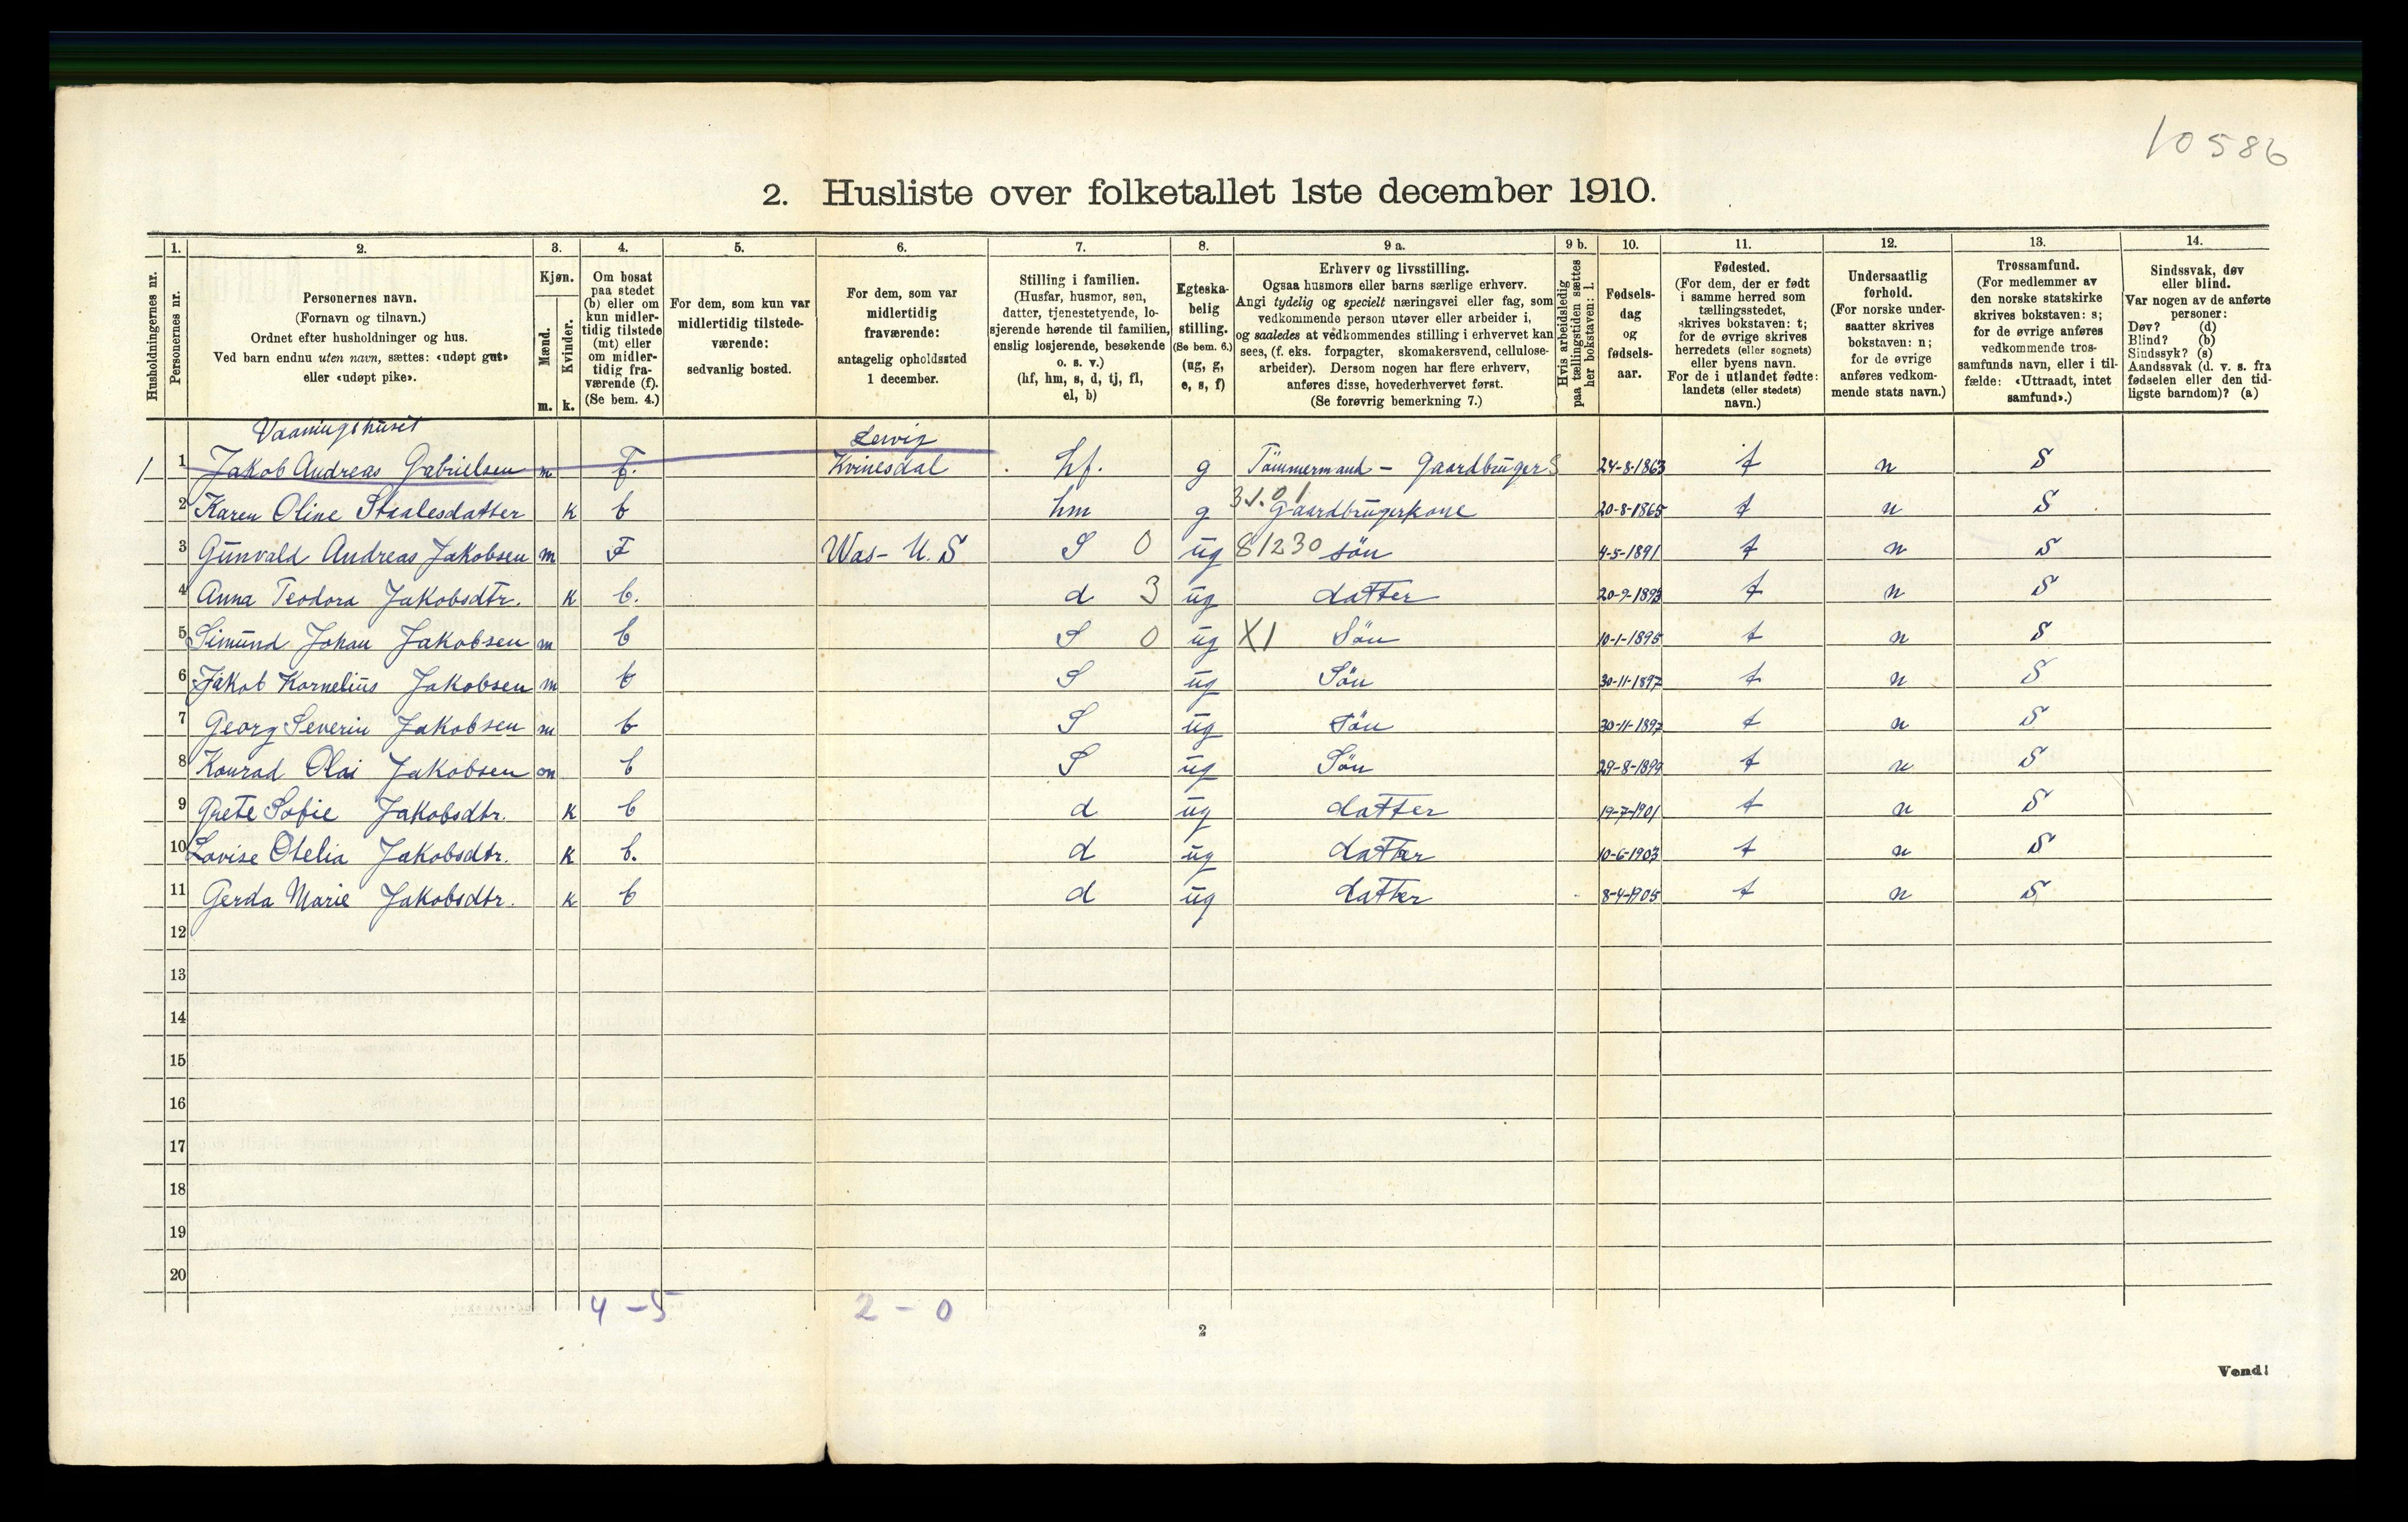 10586
2. Husliste over folketallet 1ste december 1910.
Husholdningernes nr.
1. Personernes nr.
2. Personernes navn.
(Fornavn og tilnavn.)
Ordnet efter husholdninger og hus.
Ved barn endnu uten navn, sættes: «udøpt gut»
eller «udøpt pike».
3. Kjøn.
Mænd. m.
Kvinder. k.
4. Om bosat
paa stedet
(b) eller om
kun midler-
tidig tilstede
(mt) eller
om midler-
tidig fra-
værende (f).
(Se bem. 4.)
5. For dem, som kun var
midlertidig tilstede-
værende:
sedvanlig bosted.
6. For dem, som var
midlertidig
fraværende:
antagelig opholdssted
1 december.
7. Stilling i familien.
(Husfar, husmor, søn,
datter, tjenestetyende, lo-
sjerende hørende til familien,
enslig losjerende, besøkende
o. s. v.)
(hf, hm, s, d, tj, fl,
el, b)
8. Egteska-
belig
stilling.
(Se bem. 6.)
(ug, g,
e, s, f)
9 a. Erhverv og livsstilling.
Ogsaa husmors eller barns særlige erhverv.
Angi tydelig og specielt næringsvei eller fag, som
vedkommende person utøver eller arbeider i,
og saaledes at vedkommendes stilling i erhvervet kan
sees, (f. eks. forpagter, skomakersvend, cellulose-
arbeider). Dersom nogen har flere erhverv,
anføres disse, hovederhvervet først.
(Se forøvrig bemerkning 7.)
9 b. Hvis arbeidsledig
paa tællingstiden sættes
her bokstaven: l.
10. Fødsels-
dag
og
fødsels-
aar.
11. Fødested.
(For dem, der er født
i samme herred som
tællingsstedet,
skrives bokstaven: t;
for de øvrige skrives
herredets (eller sognets)
eller byens navn.
For de i utlandet fødte:
landets (eller stedets)
navn.)
12. Undersaatlig
forhold.
(For norske under-
saatter skrives
bokstaven: n;
for de øvrige
anføres vedkom-
mende stats navn.)
13. Trossamfund.
(For medlemmer av
den norske statskirke
skrives bokstaven: s;
for de øvrige anføres
vedkommende tros-
samfunds navn, eller i til-
fælde: «Uttraadt, intet
samfund».)
14. Sindssvak, døv
eller blind.
Var nogen av de anførte
personer:
Døv? (d)
Blind? (b)
Sindssyk? (s)
Aandssvak (d. v. s. fra
fødselen eller den tid-
ligste barndom)? (a)
Vaaningshuset
1 1 Jakob Andreas Gabrielsen m F. Kvinesdal hf. g Tömmermand - Gaardbruger S 24-8-1863 t n S
2 Karen Oline Staalesdatter k b hm g Gaardbrugerkone 20-8-1865 t n S
3 Gunvald Andreas Jakobsen m F Was- U. S S 0 ug 81230 sön 4-5-1891 t n S
4 Anna Teodora Jakobsdtr. k b. d 3 ug datter 20-9-1893 t n S
5 Simund Johan Jakobsen m b S 0 ug X1 Sön 10-1-1895 t n S
6 Jakob Kornelius Jakobsen m b S ug Sön 30-11-1897 t n S
7 Georg Severin Jakobsen m b S ug Sön 30-11-1897 t n S
8 Konrad Olai Jakobsen m b S ug Sön 29-8-1899 t n S
9 Grete Sofie Jakobsdtr. k b d ug datter 19-7-1901 t n S
10 Lovise Otelia Jakobsdtr. k b. d ug datter 10-6-1903 t n S
11 Gerda Marie Jakobsdtr. k b d ug datter 8-4-1905 t n S
12
13
14
15
16
17
18
19
20
4 - 5 2 - 0
2
Vend!